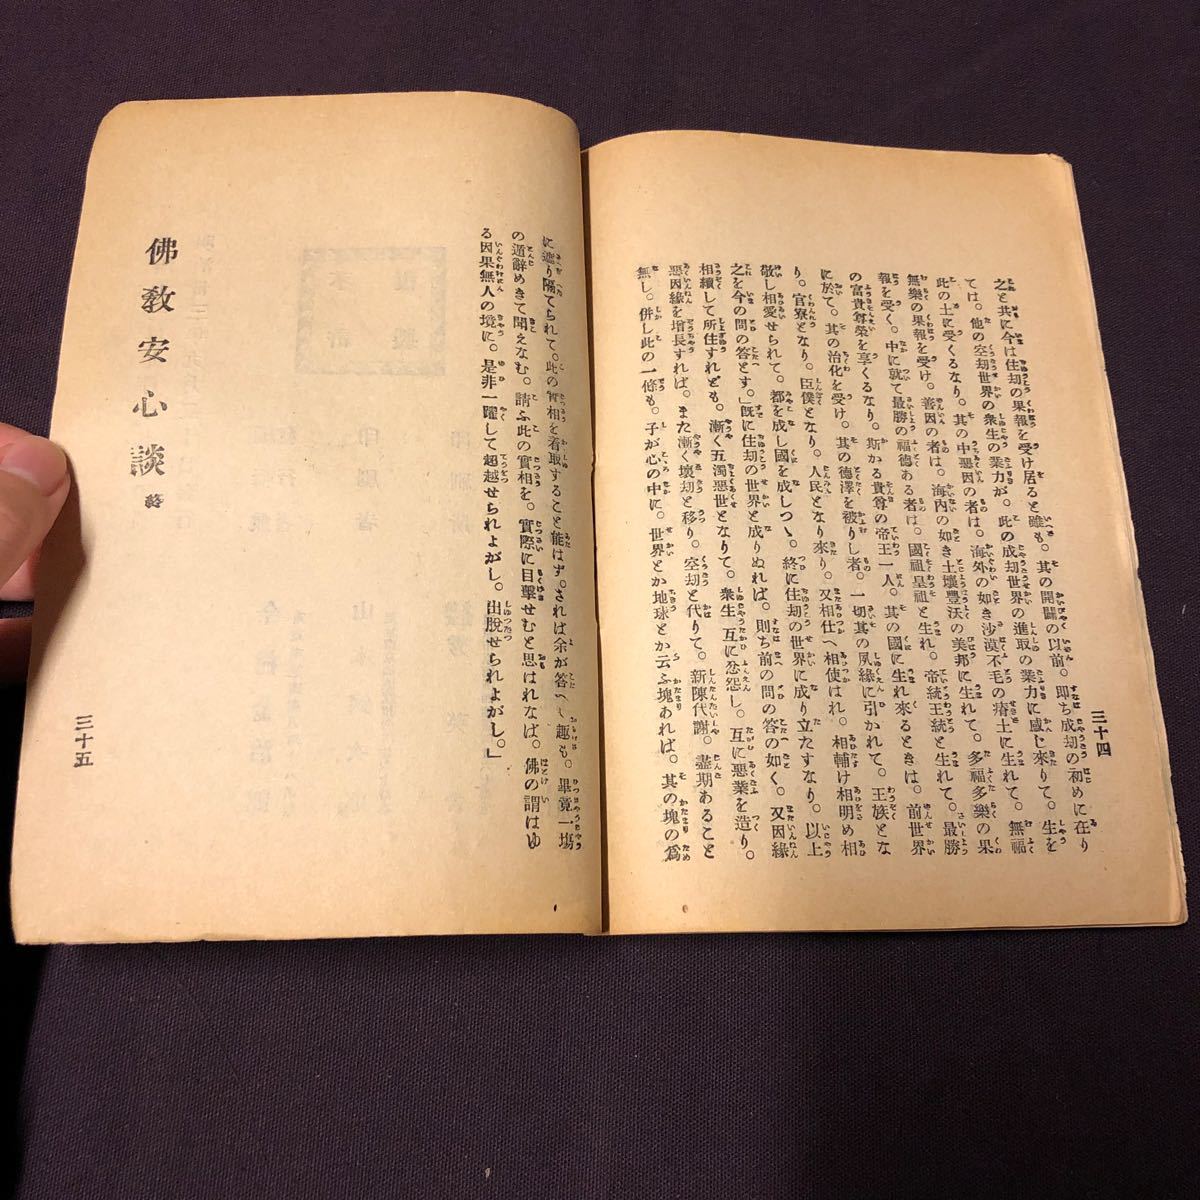 三十四
之と共に今は住劫の果報を受け居ると雖も。其の開闢の以前。即ち成劫の初めに在り
ては。他の空劫世界の衆生の業力が。此の成劫世界の進取の業力に感じ來りて。生を
此の土に受くるなり。其の中惡因の者は。海外の如き沙漠不毛の瘠土に生れて。無福
無樂の果報を受け。善因の者は。海內の如き土壤豐沃の美邦に生れて。多福多樂の果
報を受く。中に就て最勝の福德ある者は。國祖皇祖と生れ。帝統王統と生れて。最勝
の富貴尊榮を享くるなり。斯かる貴尊の帝王一人。其の國に生れ來るときは。前世界
に於て。其の治化を受け。其の德澤を被りし者。一切其の夙緣に引かれて。王族とな
り。官寮となり。臣僕となり。人民となり來り。又相仕へ相使はれ。相輔け相明め相
敬し相愛せられて。都を成し國を成しつゝ。終に住劫の世界に成り立たすなり。以上
之を今の問の答とす。」既に住劫の世界と成りぬれば。則ち前の問の答の如く。又因緣
相續して所住すれども。漸く五濁惡世となりて。衆生互に忿怨し。互に惡業を造り。
惡因緣を增長すれば。また漸く壞劫と移り。空劫と代りて。新陳代謝。盡期あること
無し。併し此の一條も。子が心の中に。世界とか地球とか云ふ塊あれば。其の塊の爲
に遮り隔てられて。此の實相を着取すること能はず。されは余が答へし趣も。畢竟一塲
の遁辭めきて聞えなむ。請ふ此の實相を。實際に目擊せむと思はれなば。佛の謂はゆ
る因果無人の境に。是非一躍して超越せられよがし。出脫せられよがし。」
佛敎安心談 終
三十五